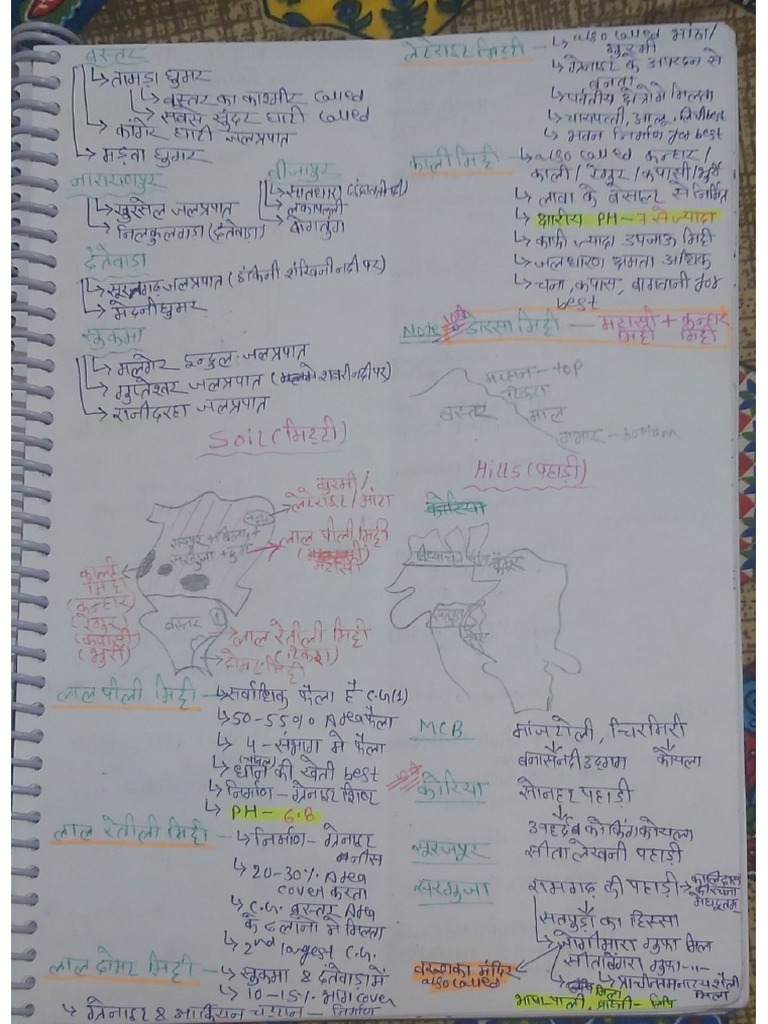 बस्तर
↳ तामड़ा घुमर
↳ बस्तर का काश्मीर called
↳ सबसे सुंदर घाटी called
↳ कांगेर घाटी जलप्रपात
↳ मड़वा घुमर
नारायणपुर
↳ खुरसेल जलप्रपात
बीजापुर
↳ सातधारा
↳ लंकापल्ली
↳ बोगतुंग
दंतेवाडा
↳ सूरतगढ़ जलप्रपात (डंकिनी शंखिनी नदी पर)
↳ मेदनीघुमर
सुकमा
↳ मलगेर इन्दुल जलप्रपात
↳ गुप्तेश्वर जलप्रपात
↳ रानीदरहा जलप्रपात
Soil (मिट्टी)
खुरमी/
लेटेराइट / भांठा
लाल पीली मिट्टी
काली
मिट्टी
(कन्हार)
बस्तर
लाल रेतीली मिट्टी
(टिकरा)
दोमट मिट्टी
लाल पीली मिट्टी → सर्वाधिक फैला है C.G (1)
↳ 50-55% Area फैला
↳ 4 - संभाग मे फैला
↳ धान की खेती best
↳ निर्माण - ग्रेनाइट
↳ PH - 6.8
लाल रेतीली मिट्टी → निर्माण - ग्रेनाइट
↳ 20-30% Area
cover करता
↳ C.G. बस्तर Area
के ढलानो मे मिलता
↳ 2nd largest C.G.
लाल दोमट मिट्टी → सुकमा & दंतेवाड़ा में
↳ 10-15% भाग cover
↳ ग्रेनाइट & आर्कियन चट्टान - निर्माण
लेटेराइट मिट्टी → also called भांठा/
मुरमी
↳ ग्रेनाइट के अपरदन से
बनता
↳ पर्वतीय क्षेत्रो मे मिलता
↳ चायपत्ती, आलू,
↳ भवन निर्माण for best
काली मिट्टी → also called कन्हार/
काली/रेगुर/कपासी/भर्री
↳ लावा के बेसाल्ट से निर्मित
↳ क्षारीय PH - 7 से ज्यादा
↳ काफी ज्यादा उपजाऊ मिट्टी
↳ जलधारण क्षमता अधिक
↳ चना, कपास, बागवानी for
best
Note डोरसा मिट्टी — मटासी + कन्हार
मिट्टी मिट्टी
मरहान - top
टिकरा
बस्तर
माल
गभार - bottom
Hills (पहाड़ी)
कोरिया
MCB मांजटोली, चिरमिरी
बनास नदी उद्गम कोयला
कोरिया सोनहट पहाड़ी
सूरजपुर सीता लेखनी पहाडी
सरगुजा रामगढ़ की पहाड़ी → कालिदास
की रचना
मेघदूतम्
सतपुड़ा का हिस्सा
→ जोगीमारा गुफा मिल
सीताबेंगरा गुफा -"-
वरुण का मंदिर
also called
↳ प्राचीनतम नाट्यशैली
मिला
भाषा - पाली, ब्राह्मी - लिपि